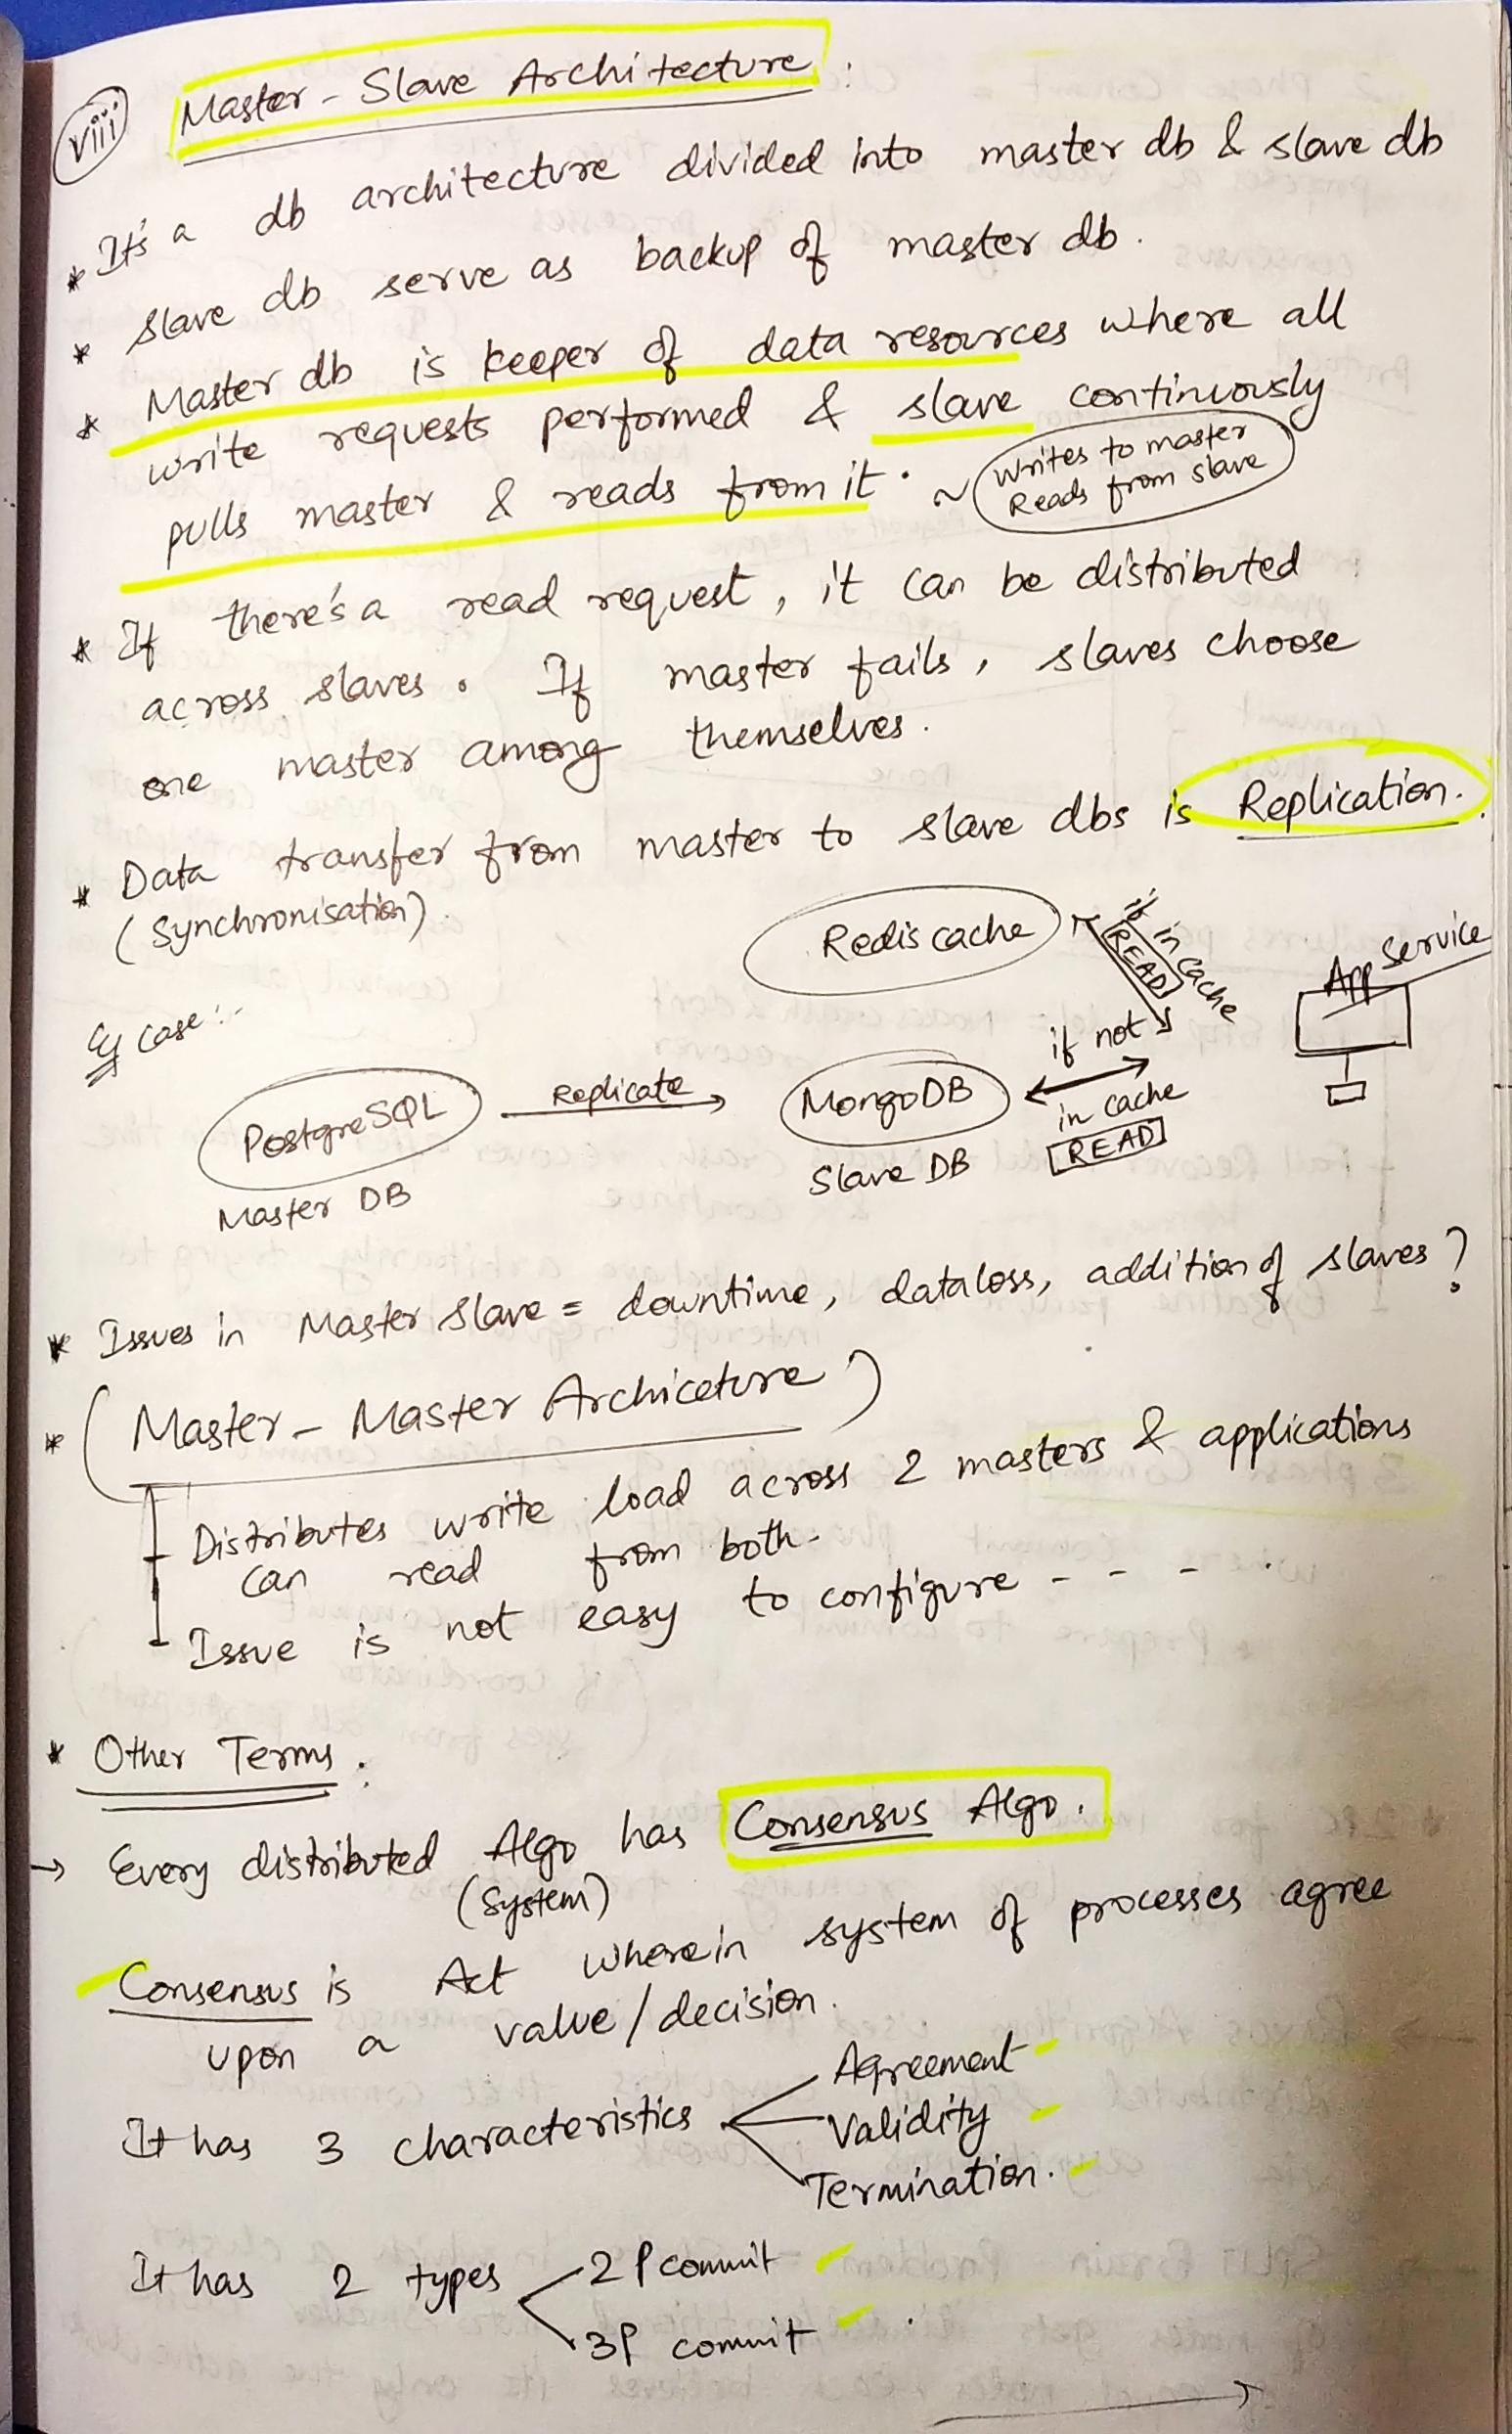 viii Master - Slave Architecture :
* It's a db architecture divided into master db & slave db
* Slave db serve as backup of master db.
* Master db is keeper of data resources where all
write requests performed & slave continuously
pulls master & reads from it. ~ Writes to master
Reads from slave
* If there's a read request, it can be distributed
across slaves. If master fails, slaves choose
one master among themselves.
* Data transfer from master to slave dbs is Replication.
(Synchronisation).
Redis cache
if in cache
READ
App Service
Eg case :-
PostgreSQL
Replicate
MongoDB
if not
in cache
READ
Master DB
Slave DB
* Issues in Master Slave = downtime, dataloss, addition of slaves?
* (Master - Master Archiceture)
- Distributes write load across 2 masters & applications
can read from both.
- Issue is not easy to configure - - - .
* Other Terms :
→ Every distributed Algo has Consensus Algo.
(System)
Consensus is Act wherein system of processes agree
upon a value / decision.
It has 3 characteristics
Agreement
Validity
Termination.
It has 2 types
2P commit
3P commit